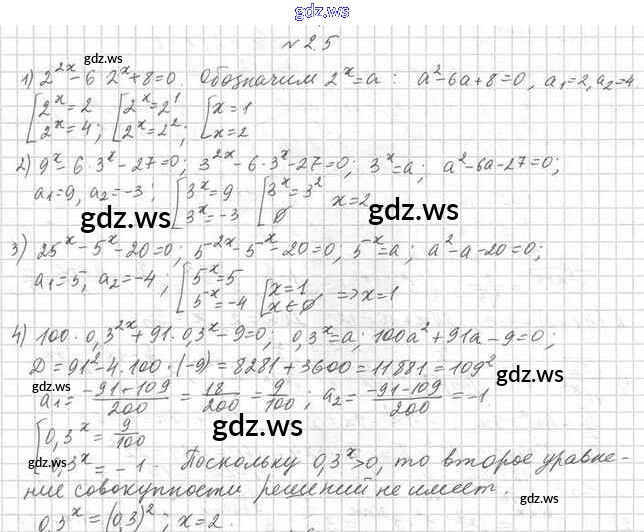 gdz.ws
№2.5
1) 2^{2x} - 6·2^x + 8 = 0 Обозначим 2^x = a : a² - 6a + 8 = 0, a₁ = 2, a₂ = 4.
[2^x = 2 [2^x = 2^1 [x = 1
[2^x = 4; [2^x = 2²; [x = 2
2) 9^x - 6·3^x - 27 = 0; 3^{2x} - 6·3^x - 27 = 0; 3^x = a; a² - 6a - 27 = 0;
a₁ = 9, a₂ = -3; [3^x = 9 [3^x = 3² x = 2
[3^x = -3 [∅
gdz.ws gdz.ws
3) 25^x - 5^x - 20 = 0; 5^{-2x} - 5^{-x} - 20 = 0; 5^{-x} = a; a² - a - 20 = 0;
a₁ = 5, a₂ = -4; [5^x = 5 [x = 1
[5^x = -4 [x ∈ ∅ => x = 1
gdz.ws gdz.ws
4) 100·0,3^{2x} + 91·0,3^x - 9 = 0; 0,3^x = a; 100a² + 91a - 9 = 0;
D = 91² - 4·100·(-9) = 8281 + 3600 = 11881 = 109²
gdz.ws gdz.ws
a₁ = (-91+109)/200 = 18/200 = 9/100; a₂ = (-91-109)/200 = -1
[0,3^x = 9/100
gdz.ws
[0,3^x = -1. Поскольку 0,3^x > 0, то второе уравне-
gdz.ws gdz.ws
ние совокупности решений не имеет.
0,3^x = (0,3)²; x = 2.
gdz.ws